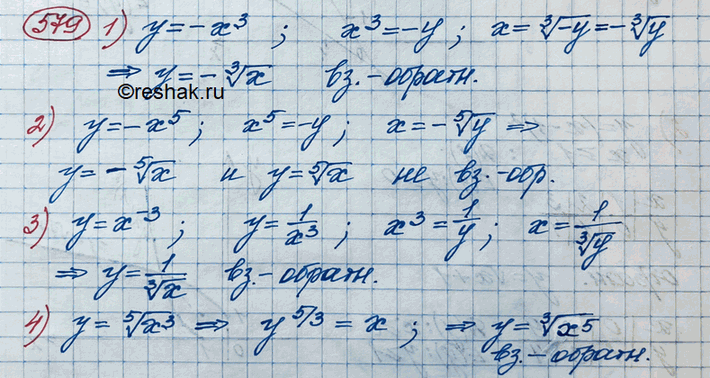 579 1) y = -x³ ; x³ = -y ; x = ∛-y = -∛y
⇒ y = -∛x вз.-обратн.
©reshak.ru
2) y = -x⁵ ; x⁵ = -y ; x = -⁵√y ⇒
y = -⁵√x и y = ⁵√x не вз.-обр.
3) y = x⁻³ ; y = 1/x³ ; x³ = 1/y ; x = 1/∛y
⇒ y = 1/∛x вз.-обратн.
4) y = ⁵√x³ ⇒ y^5/3 = x ; ⇒ y = ∛x⁵
вз.-обратн.